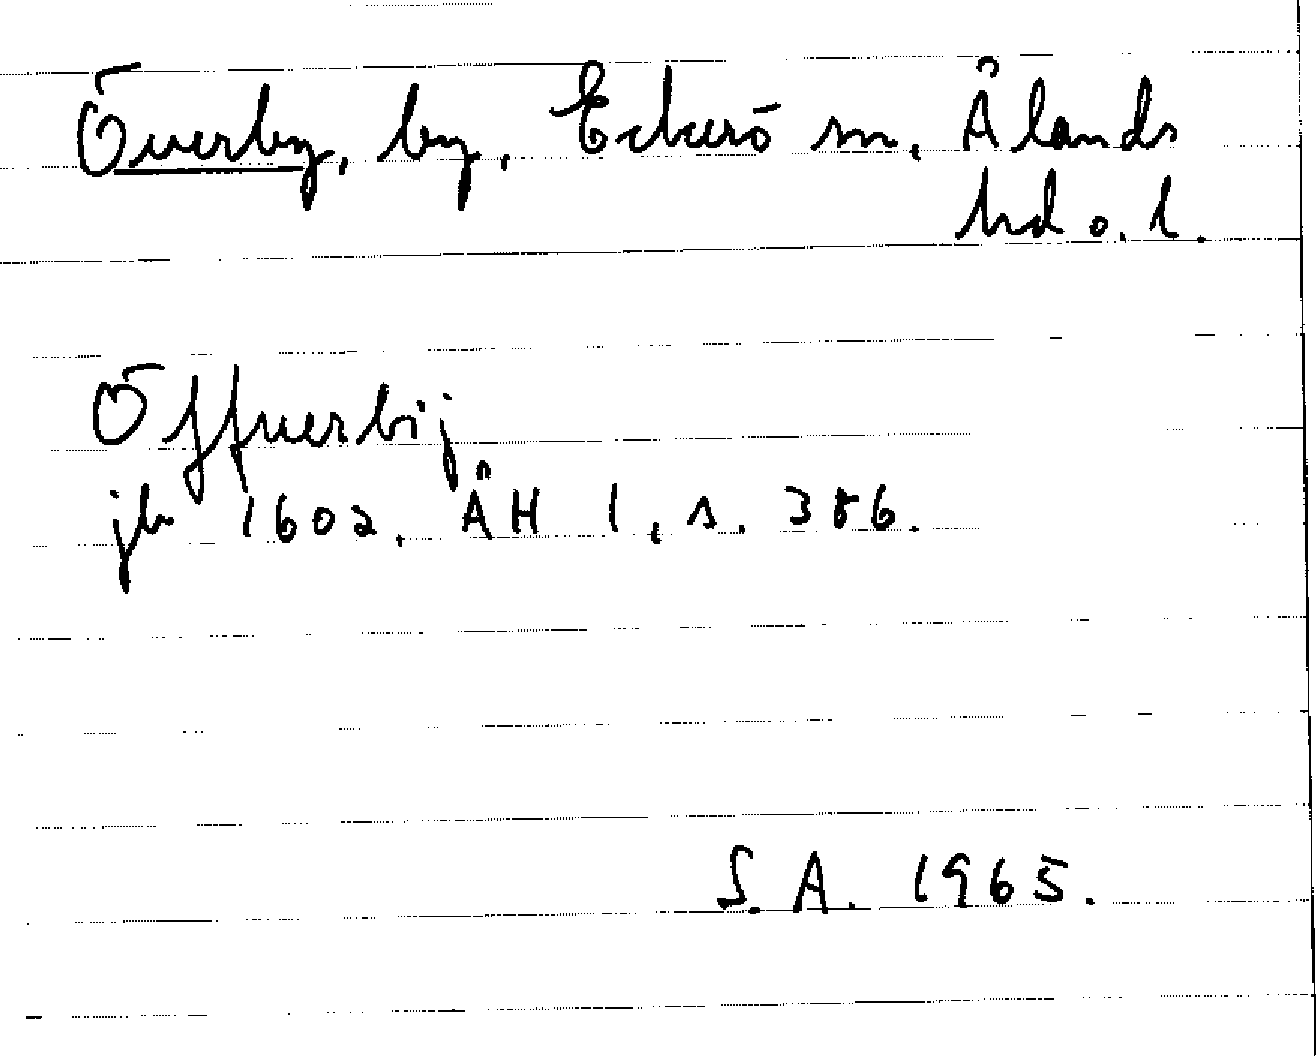 Överby, by, Eckerö sn, Ålands
hd o. l.
Öffuerbij
jb 1602, ÅH 1, s. 386.
S. A. 1965.